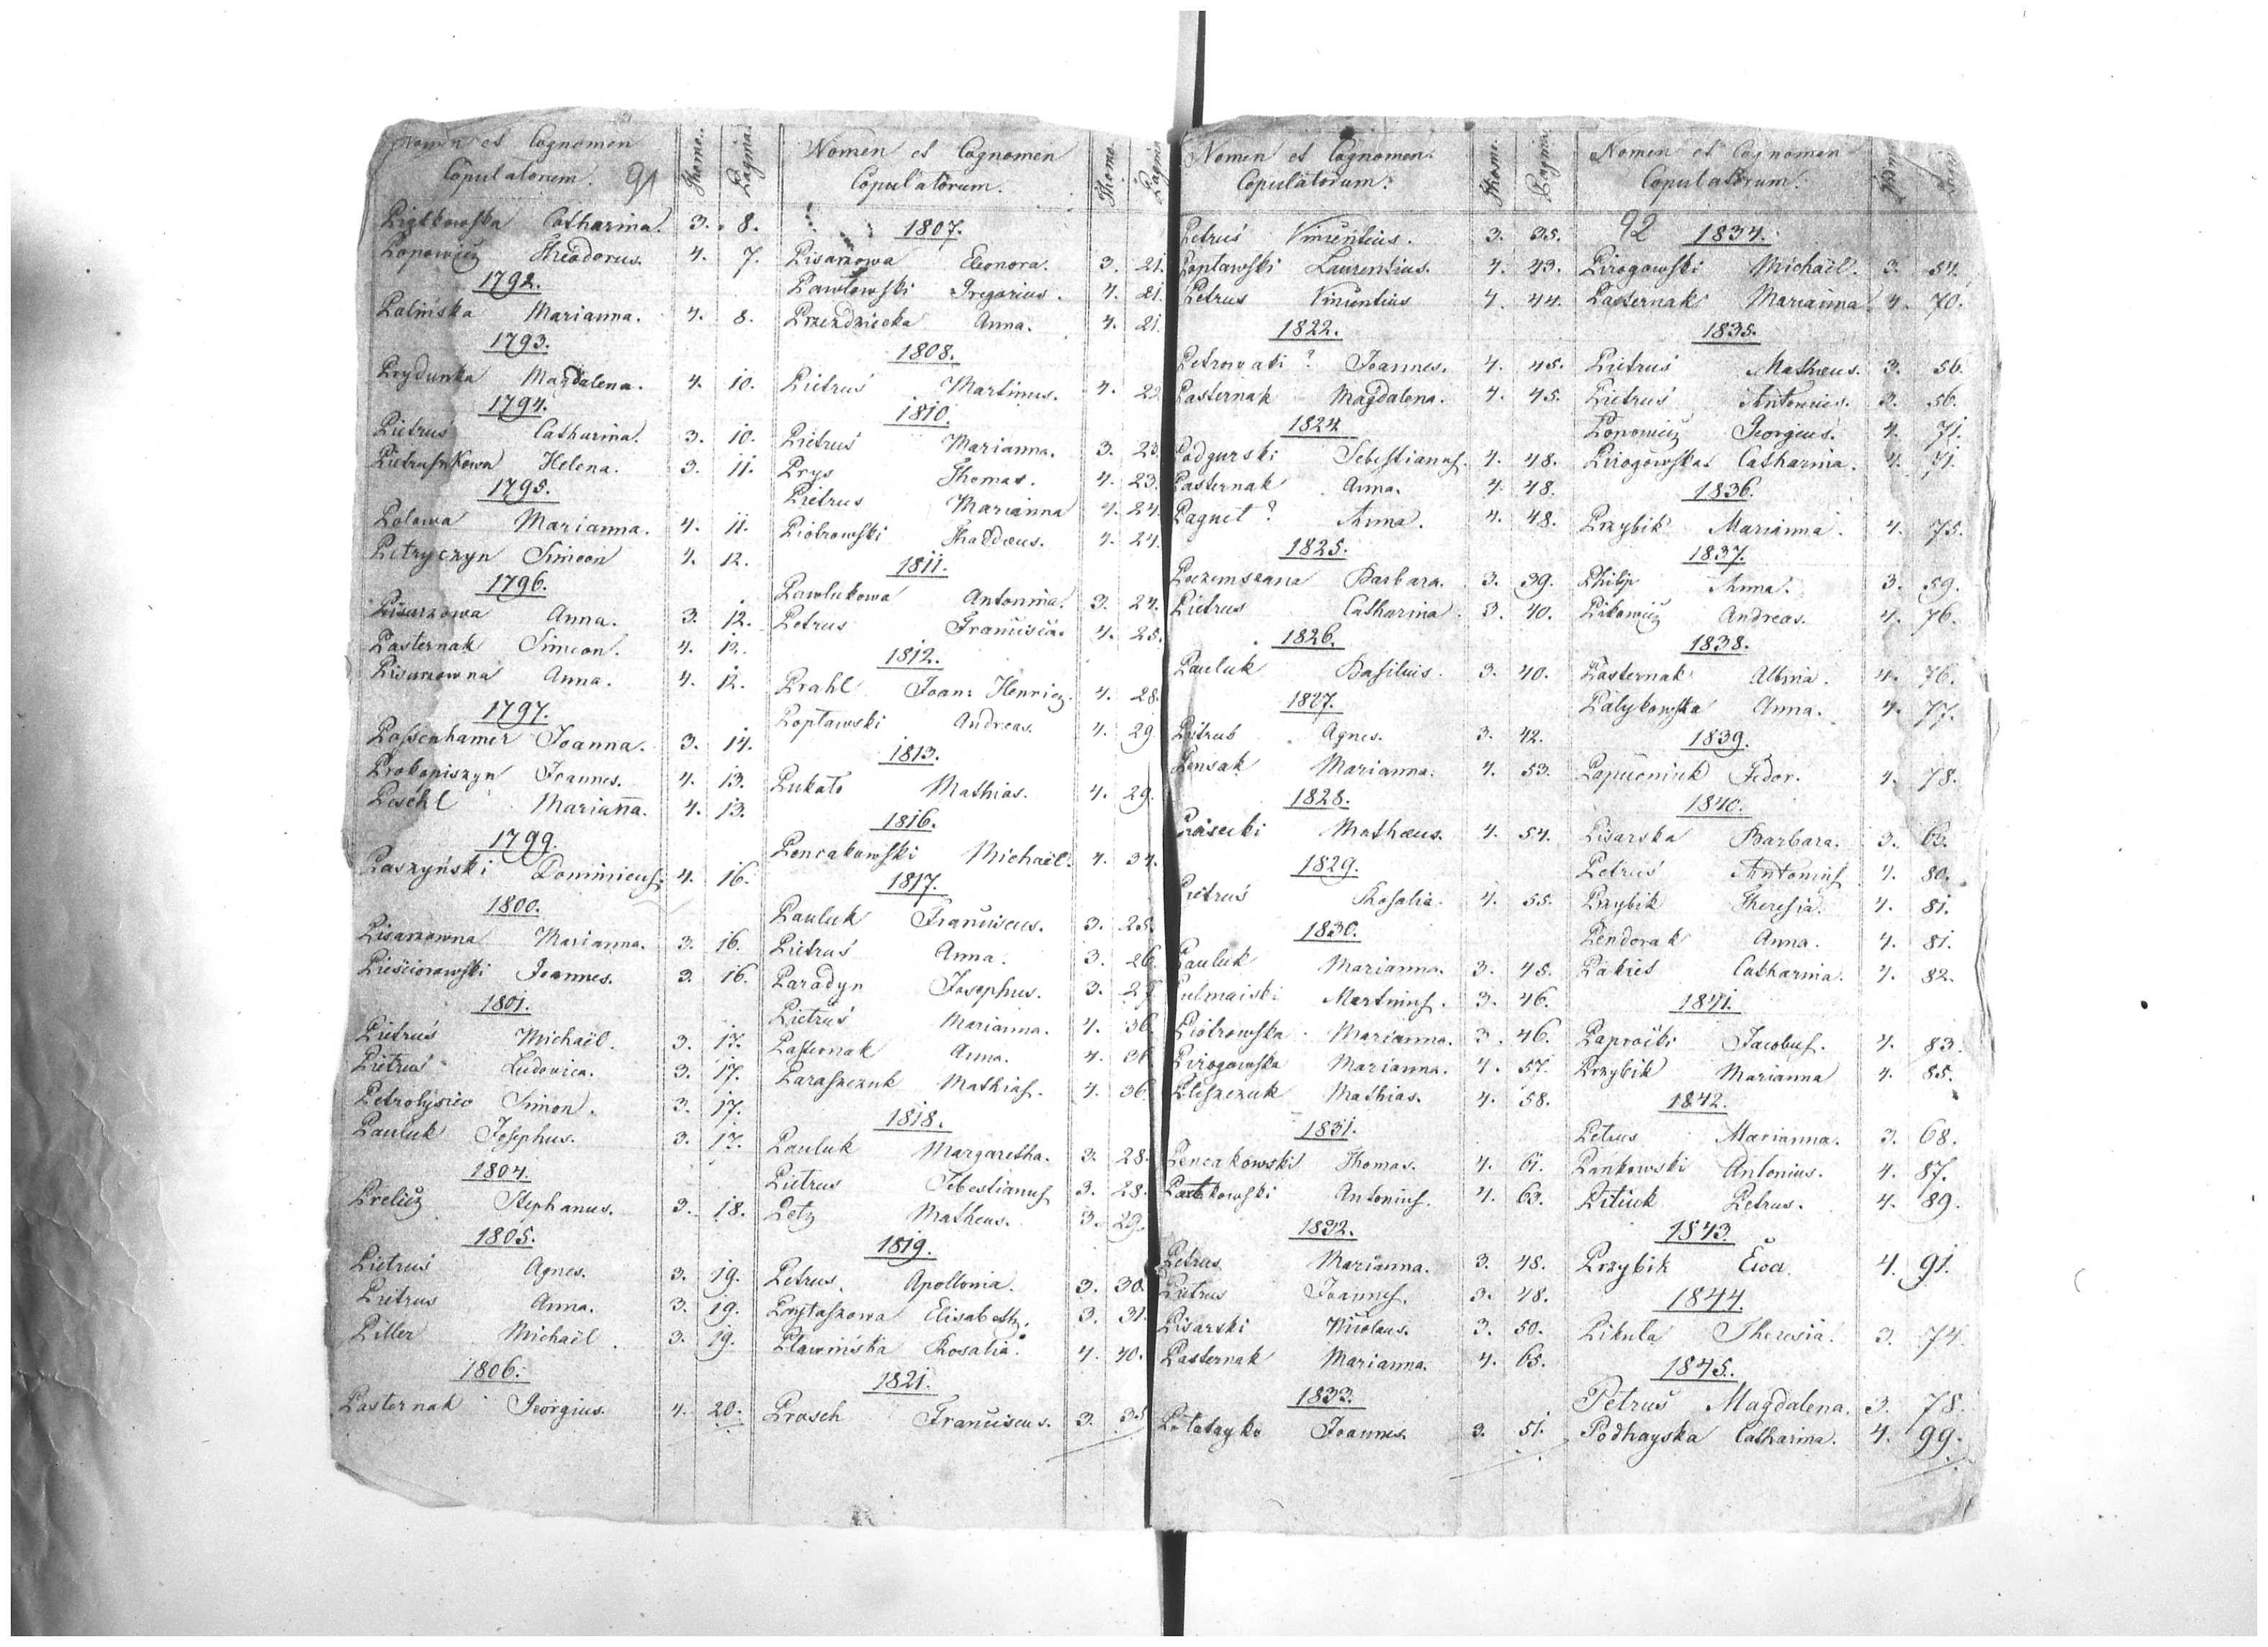 Nomen et Cognomen
Copulatorum. 91 Thomo. Pagina.
Piątkowska Catharina. 3. 8.
Popowicz Theodorus. 4. 7.
1792.
Polińska Marianna. 4. 8.
1793.
Prydunka Magdalena. 4. 10.
1794.
Pietruś Catharina. 3. 10.
Pietraszkowa Helena. 3. 11.
1795.
Polowa Marianna. 4. 11.
Petryczyn Simeon 4. 12.
1796.
Pisarzowa Anna. 3. 12.
Pasternak Simeon. 4. 12.
Pisarzowna Anna. 4. 12.
1797.
Possenhamer Joanna. 3. 14.
Prokopiszyn Joannes. 4. 13.
Peschl Marianna. 4. 13.
1799.
Paszyński Dominicus. 4. 16.
1800.
Pisarzowna Marianna. 3. 16.
Pieściorowski Joannes. 3. 16.
1801.
Pietruś Michaël. 3. 17.
Pietruś Ludovica. 3. 17.
Simon. 3. 17.
Pauluk Josephus. 3. 17.
1804.
Prelicz Stephanus. 3. 18.
1805.
Pietruś Agnes. 3. 19.
Pietrus Anna. 3. 19.
Piller Michaël. 3. 19.
1806.
Pasternak Georgius. 4. 20.
Nomen et Cognomen
Copulatorum. Thomo. Pagina
1807.
Pisarzowa Eleonora. 3. 21.
Pawłowski Gregorius. 4. 21.
Przezdziecka Anna. 4. 21.
1808.
Pietruś Martinus. 4. 22.
1810.
Pietruś Marianna. 3. 23.
Prys Thomas. 4. 23.
Pietrus Marianna 4. 24.
Piotrowski Thaddæus. 4. 24.
1811.
Pawlukowa Antonina. 3. 24.
Petrus Francisca. 4. 25.
1812.
Prahl Joan: Henricz. 4. 28.
Popławski Andreas. 4. 29
1813.
Pukało Mathias. 4. 29.
1816.
Pencakowski Michaël. 4. 34.
1817.
Pauluk Franciscus. 3. 25.
Pietruś Anna. 3. 26.
Paradyn Josephus. 3. 27
Pietruś Marianna. 4. 36.
Pasternak Anna. 4. 36
Paraszczuk Mathias. 4. 36
1818.
Pauluk Margaretha. 3. 28.
Pietrus Sebestianus 3. 28.
Petz Matheus. 3. 29.
1819.
Petrus Apollonia. 3. 30.
Prytaszowa Elisabeth. 3. 31.
Pławińska Rosalia. 4. 40.
1821.
Prosch Franciscus. 3. 35
Nomen et Cognomen
Copulatorum. Thomo. Pagina.
Petruś Vincentius. 3. 35.
Popławski Laurentius. 4. 43.
Petrus Vincentius 4. 44.
1822.
Petrowati? Joannes. 4. 45.
Pasternak Magdalena. 4. 45.
1824
Podgurski Sebestianus. 4. 48.
Pasternak Anna. 4. 48.
Pagnet? Anna. 4. 48.
1825.
Barbara. 3. 39.
Pietrus Catharina. 3. 40.
1826.
Pauluk Basilius. 3. 40.
1827.
Pitrus Agnes. 3. 42.
Pensak Marianna. 4. 53.
1828.
Piasecki Mathæus. 4. 54.
1829.
Pietruś Rosalia. 4. 55.
1830.
Pauluk Marianna. 3. 45.
Pulmaiski Martinus. 3. 46.
Piotrowska Marianna. 3. 46.
Pirogowska Marianna. 4. 57.
Pliszczuk Mathias. 4. 58.
1831.
Pencakowski Thomas. 4. 61.
Antonius. 4. 63.
1832.
Petrus Marianna. 3. 48.
Pietrus Joannes. 3. 48.
Pisarski Nicolaus. 3. 50.
Pasternak Marianna. 4. 65.
1833.
Joannes. 3. 51.
Nomen et Cognomen
Copulatorum.
92 1834.
Pirogowski Michaël. 3. 54.
Pasternak Marianna 4. 70.
1835.
Pietruś Mathæus. 3. 56.
Pietruś Antonius. 3. 56.
Popowicz Georgius. 4. 71.
Pirogowska Catharina. 4. 71.
1836.
Przybik Marianna. 4. 75.
1837.
Philip Anna. 3. 59.
Pitowicz Andreas. 4. 76.
1838.
Pasternak Albina. 4. 76.
Palykowska Anna. 4. 77.
1839.
Papuoniuk Fedor. 4. 78.
1840.
Pisarska Barbara. 3. 63.
Petruś Antonius 4. 80.
Przybik Theresia. 4. 81.
Pendorak Anna. 4. 81.
Pakies Catharina. 4. 82.
1841.
Paprocki Jacobus. 4. 83.
Przybik Marianna 4. 85.
1842.
Petrus Marianna. 3. 68.
Pankowski Antonius. 4. 87.
Pituck Petrus. 4. 89.
1843.
Przybik Ewa 4. 91.
1844.
Pikula Theresia. 3. 74.
1845.
Petruś Magdalena. 3. 78.
Podhayska Catharina. 4. 99.